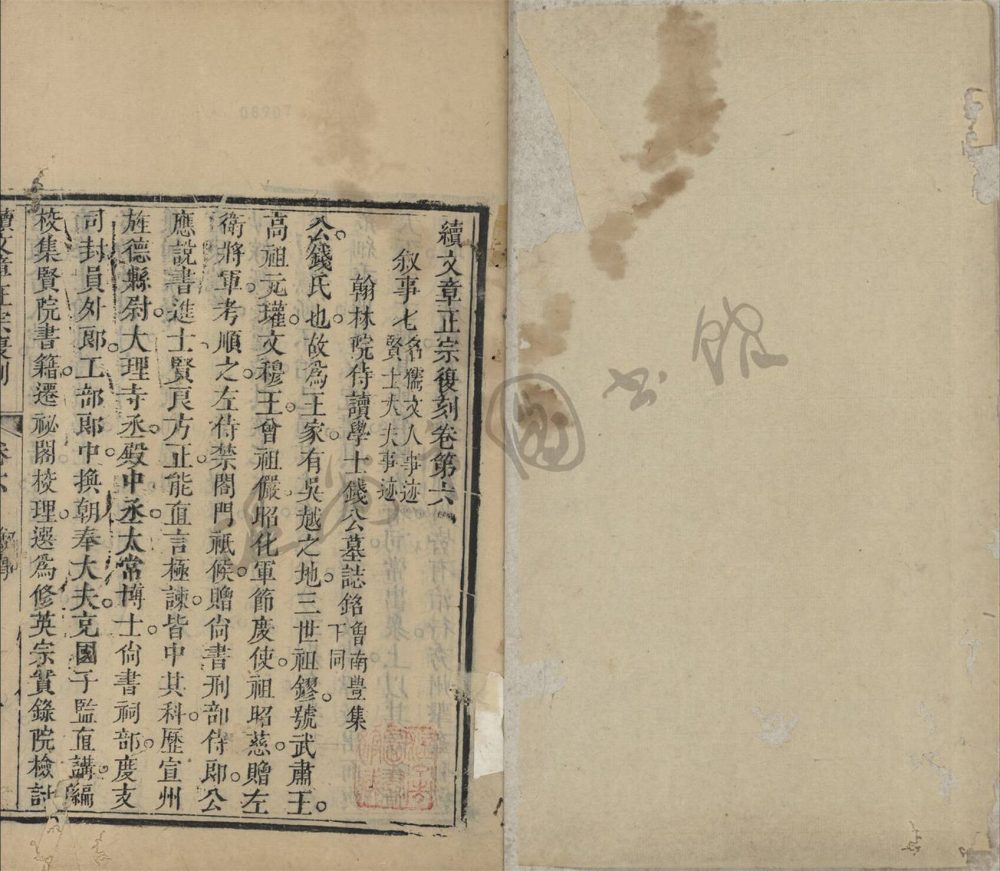 續文章正宗復刻卷第六
叙事七名儒文人事迹
賢士大夫事迹
翰林院侍讀學士錢公墓誌銘曾南豊集
下同
公錢氏也故為王家有吳越之地三世祖鏐號武肅王
高祖元瓘文穆王曾祖儼昭化軍節度使祖昭慈贈左
衛將軍考順之左侍禁閤門祗候贈尚書刑部侍郎公
應說書進士賢良方正能直言極諫皆中其科歷宣州
旌德縣尉大理寺丞殿中丞太常博士尚書祠部度支
司封員外郎工部郎中換朝奉大夫充國子監直講編
校集賢院書籍遷祕閣校理選為修英宗實錄院檢討
續文章正宗復刻
卷六
書館
圖